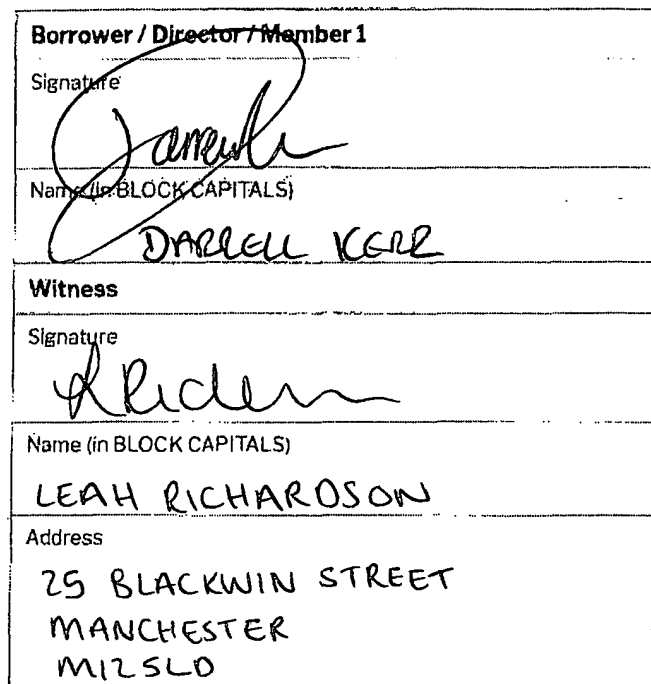 Borrower / Director / Member 1
Signature
Name (in BLOCK CAPITALS)
DARRELL KERR
Witness
Signature
Name (in BLOCK CAPITALS)
LEAH RICHARDSON
Address
25 BLACKWIN STREET
MANCHESTER
M12 5LD